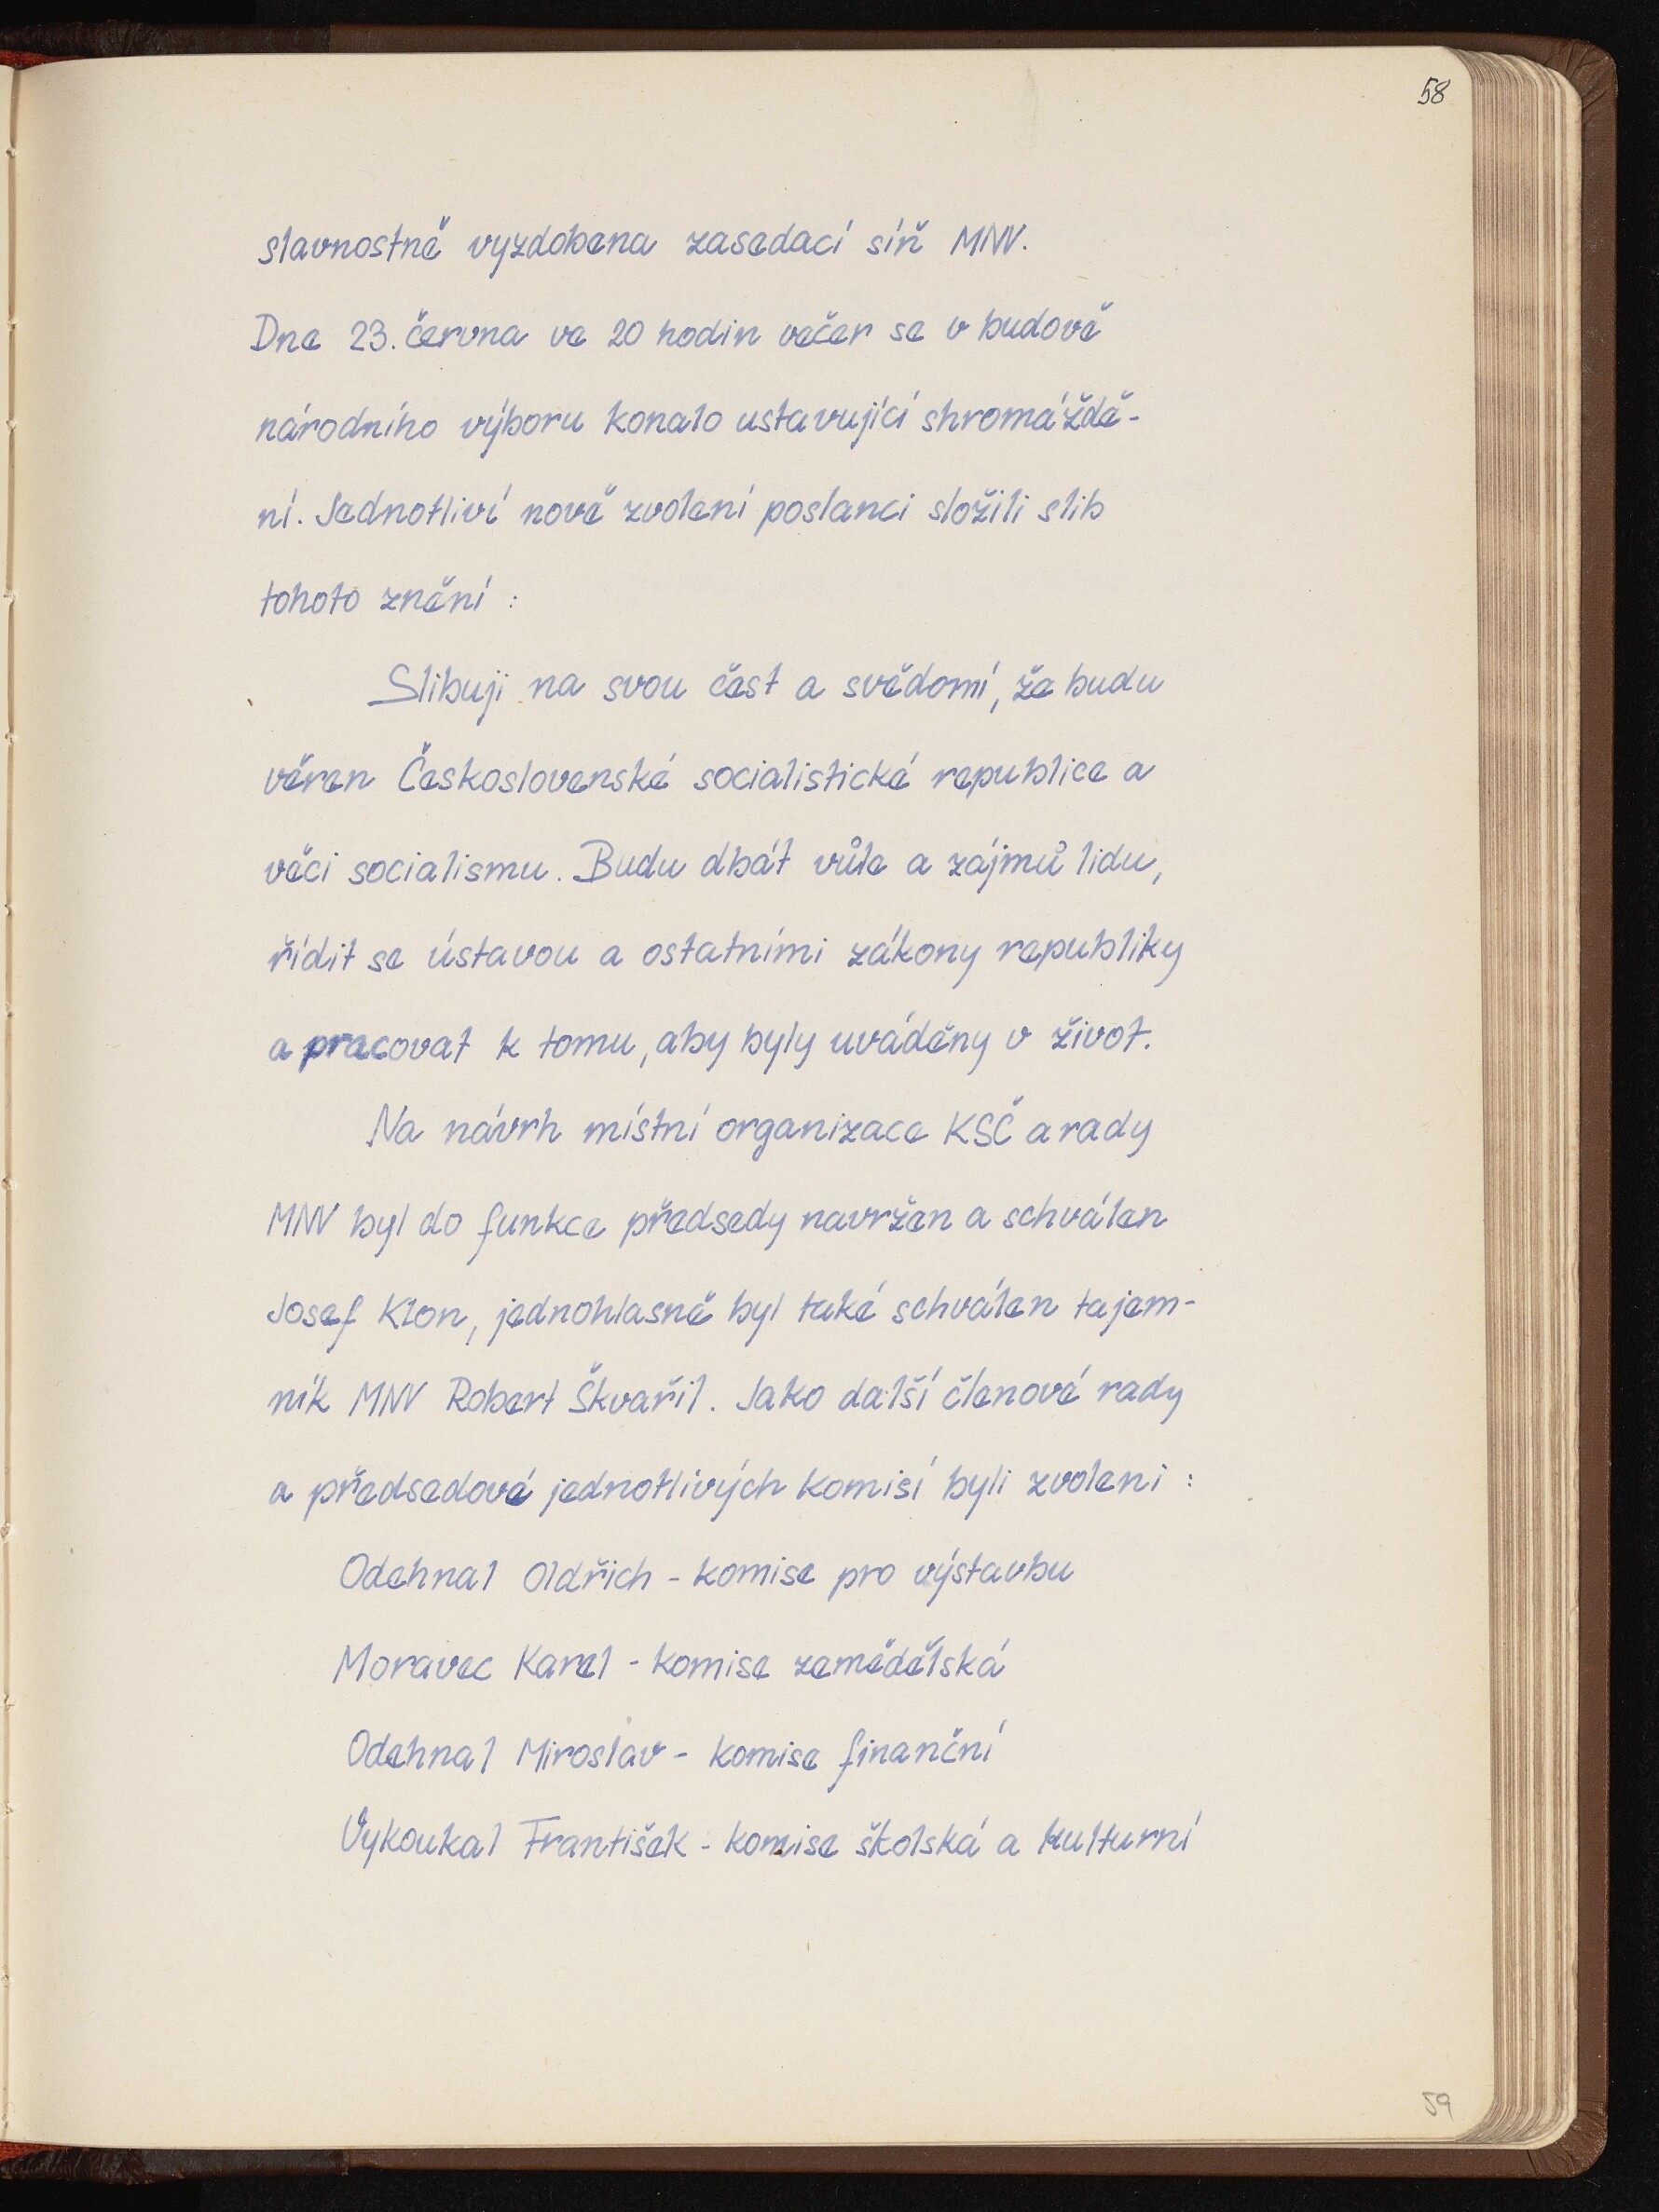 58
slavnostně vyzdobena zasedací síň MNV.
Dne 23. června ve 20 hodin večer se v budově
národního výboru konalo ustavující shromáždě-
ní. Jednotliví nově zvolení poslanci složili slib
tohoto znění :
Slibuji na svou čest a svědomí, že budu
věren Československé socialistické republice a
věci socialismu. Budu dbát vůle a zájmů lidu,
řídit se ústavou a ostatními zákony republiky
a pracovat k tomu, aby byly uváděny v život.
Na návrh místní organizace KSČ a rady
MNV byl do funkce předsedy navržen a schválen
Josef Klon, jednohlasně byl také schválen tajem-
ník MNV Robert Škvařil. Jako další členové rady
a předsedové jednotlivých komisí byli zvoleni :
Odehnal Oldřich - komise pro výstavbu
Moravec Karel - komise zemědělská
Odehnal Miroslav - komise finanční
Vykoukal František - komise školská a kulturní
59